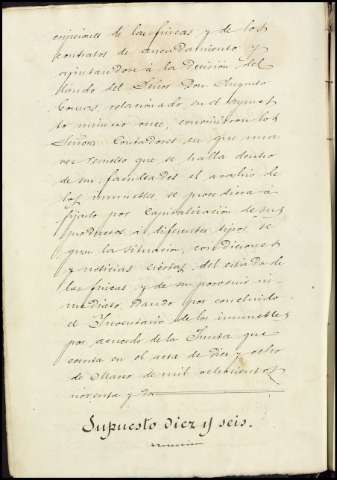 de las fincas y de los
contratos de arrendamiento y
ajustandose á la decisión del
laudo del Señor Don Augusto
Comas relacionado, en el supues-
to número once, convinieron los
Señores Contadores en que una
vez resuelto que se halla dentro
de sus facultades el avalúo de
los inmuebles, se procediera á
fijarlo por capitalización de sus
productos á diferentes tipos se-
gun la situación, condiciones
y noticias ciertas del estado de
las fincas y de su porvenir in-
mediato, dando por concluido
el Inventario de los inmuebles
por acuerdo de la Junta que
consta en el acta de diez y ocho
de Marzo de mil ochocientos
noventa y
Supuesto diez y seis.